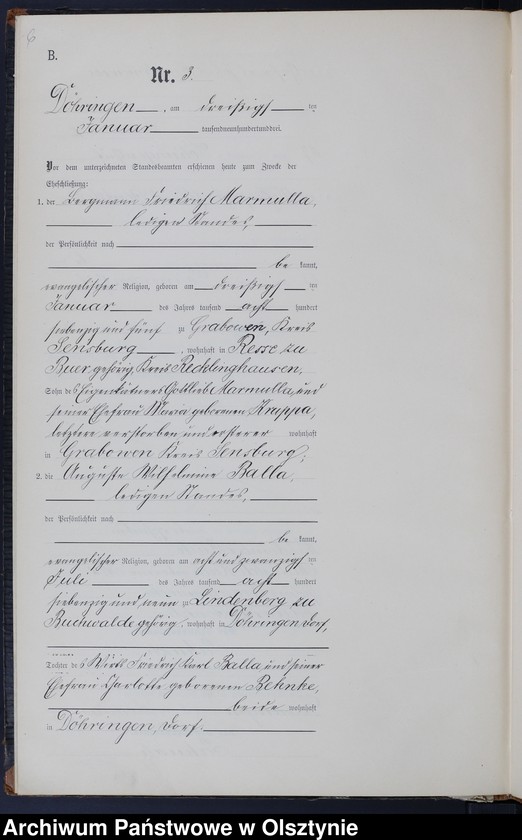 6
B.
Nr. 3.
Döhringen, am dreißigsten
Januar tausendneunhundertunddrei.
Vor dem unterzeichneten Standesbeamten erschienen heute zum Zwecke der
Eheschließung:
1. der Bergmann Friedrich Marmulla,
ledigen Standes,
der Persönlichkeit nach
bekannt,
evangelischer Religion, geboren am dreißigsten
Januar des Jahres tausend acht hundert
siebenzig und fünf zu Grabowen, Kreis
Sensburg, wohnhaft in Resse zu
Buer gehörig, Kreis Recklinghausen,
Sohn des Eigenkätners Gottlieb Marmulla und
seiner Ehefrau Maria geborenen Kruppa,
letztere verstorben und ersterer wohnhaft
in Grabowen Kreis Sensburg;
2. die Auguste Wilhelmine Balla,
ledigen Standes,
der Persönlichkeit nach
bekannt,
evangelischer Religion, geboren am acht und zwanzigsten
Juli des Jahres tausend acht hundert
siebenzig und neun zu Lindenberg zu
Buchwalde gehörig, wohnhaft in Döhringen Dorf,
Tochter des Wirts Friedrich Karl Balla und seiner
Ehefrau Charlotte geborenen Behnke,
beide wohnhaft
in Döhringen, Dorf.
Archiwum Państwowe w Olsztynie